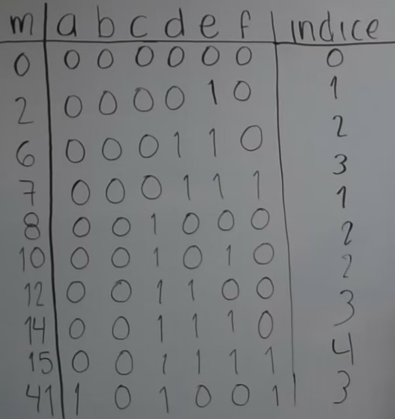 m a b c d e f indice
0 0 0 0 0 0 0 0
2 0 0 0 0 1 0 1
6 0 0 0 1 1 0 2
7 0 0 0 1 1 1 3
8 0 0 1 0 0 0 1
10 0 0 1 0 1 0 2
12 0 0 1 1 0 0 2
14 0 0 1 1 1 0 3
15 0 0 1 1 1 1 4
41 1 0 1 0 0 1 3